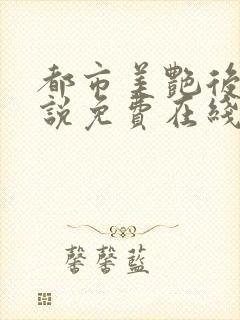 都市美艷後
說免費在綫
馨馨藍